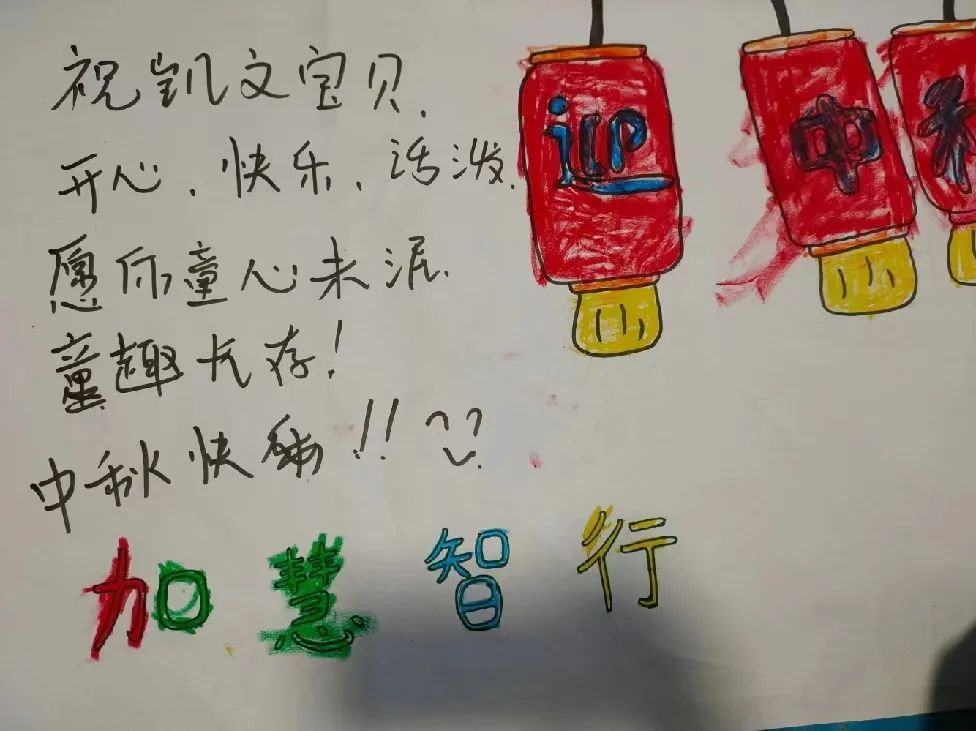 祝凯文宝贝.
开心、快乐、活泼.
愿你童心未泯.
童趣长存!
中秋快乐!!
加慧智行
中秋